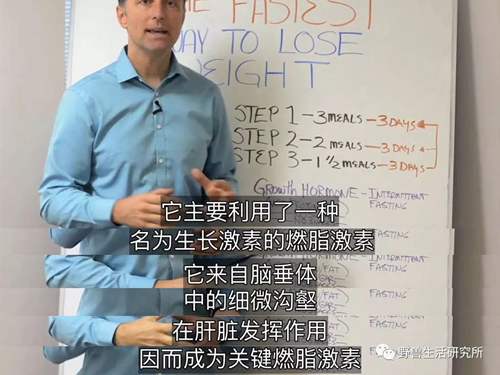 THE FASTEST
WAY TO LOSE
WEIGHT
STEP 1 - 3 MEALS - 3 DAYS
STEP 2 - 2 MEALS - 3 DAYS
STEP 3 - 1 ½ MEALS - 3 DAYS
GROWTH HORMONE - INTERMITTENT
FASTING
它主要利用了一种
名为生长激素的燃脂激素
FASTING
它来自脑垂体
中的细微沟壑
FAT
FASTING
在肝脏发挥作用
因而成为关键燃脂激素
野兽生活研究所